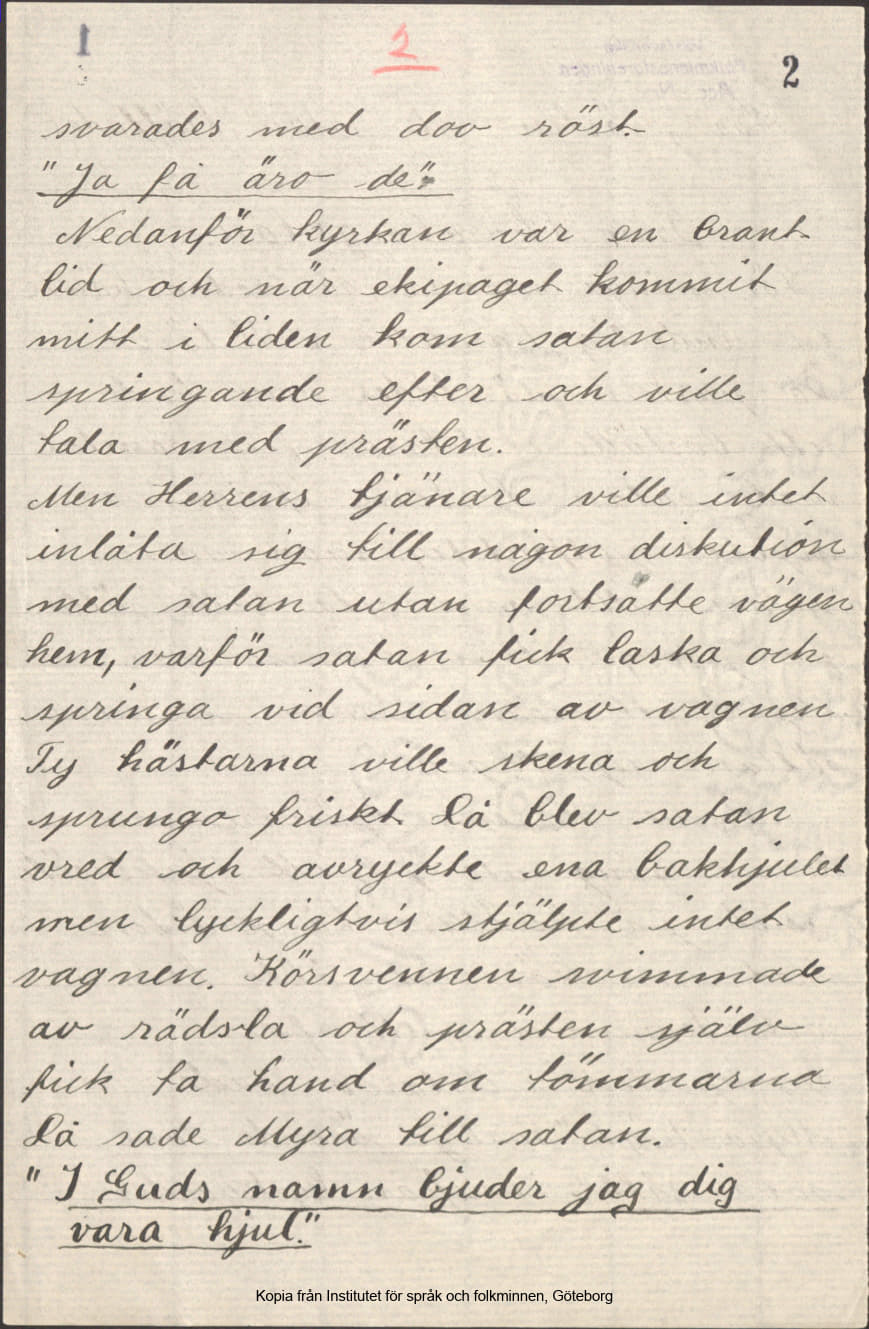 1 2 2
svarades med dov röst.
"Ja få äro de".
Nedanför kyrkan var en brant
lid och när ekipaget kommit
mitt i liden kom satan
springande efter och ville
tala med prästen.
Men Herrens tjänare ville intet
inlåta sig till någon diskution
med satan utan fortsatte vägen
hem, varför satan fick laska och
springa vid sidan av vagnen
Ty hästarna ville skena och
sprungo friskt. Då blev satan
vred och avryckte ena bakhjulet
men lyckligtvis stjälpte intet
vagnen. Körsvennen svimmade
av rädsla och prästen själv
fick ta hand om tömmarna
Då sade Myra till satan.
"I Guds namn bjuder jag dig
vara hjul."
Kopia från Institutet för språk och folkminnen, Göteborg